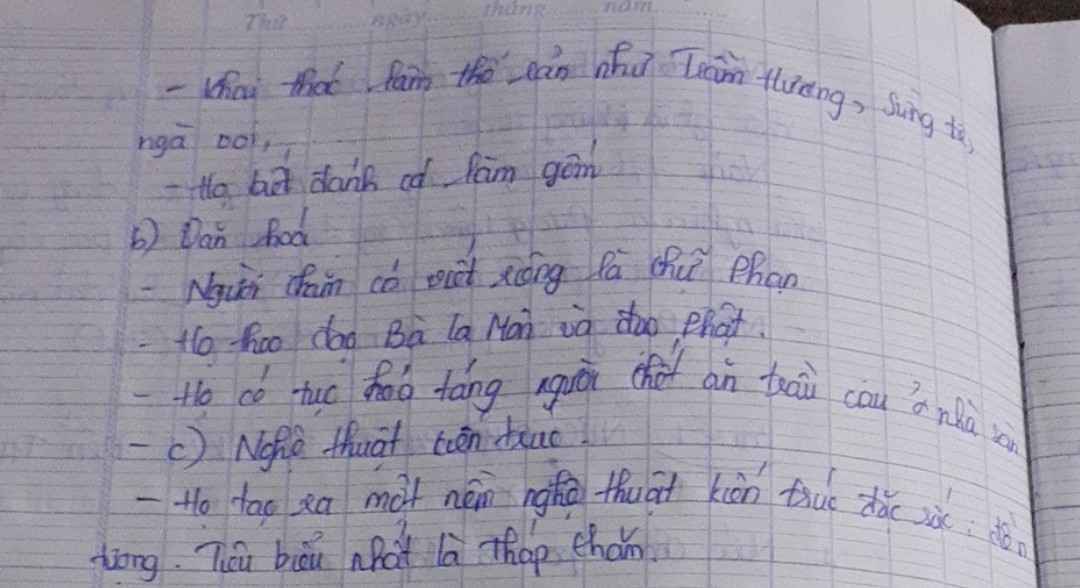 Thứ ngày tháng năm
- Khai thác lâm thổ sản như Trầm Hương, Sừng tê,
ngà voi,
- Họ biết đánh cá làm gốm
b) Văn hoá
- Người Chăm có viết riêng là chữ Phạn
- Họ theo đạo Bà la Môn và đạo Phật.
- Họ có tục hoả táng người chết ăn trầu cau ở nhà sàn
- c) Nghệ thuật kiến trúc.
- Họ tạo ra một nền nghệ thuật kiến trúc đặc sắc : đền
tượng. Tiêu biểu nhất là tháp chăm.